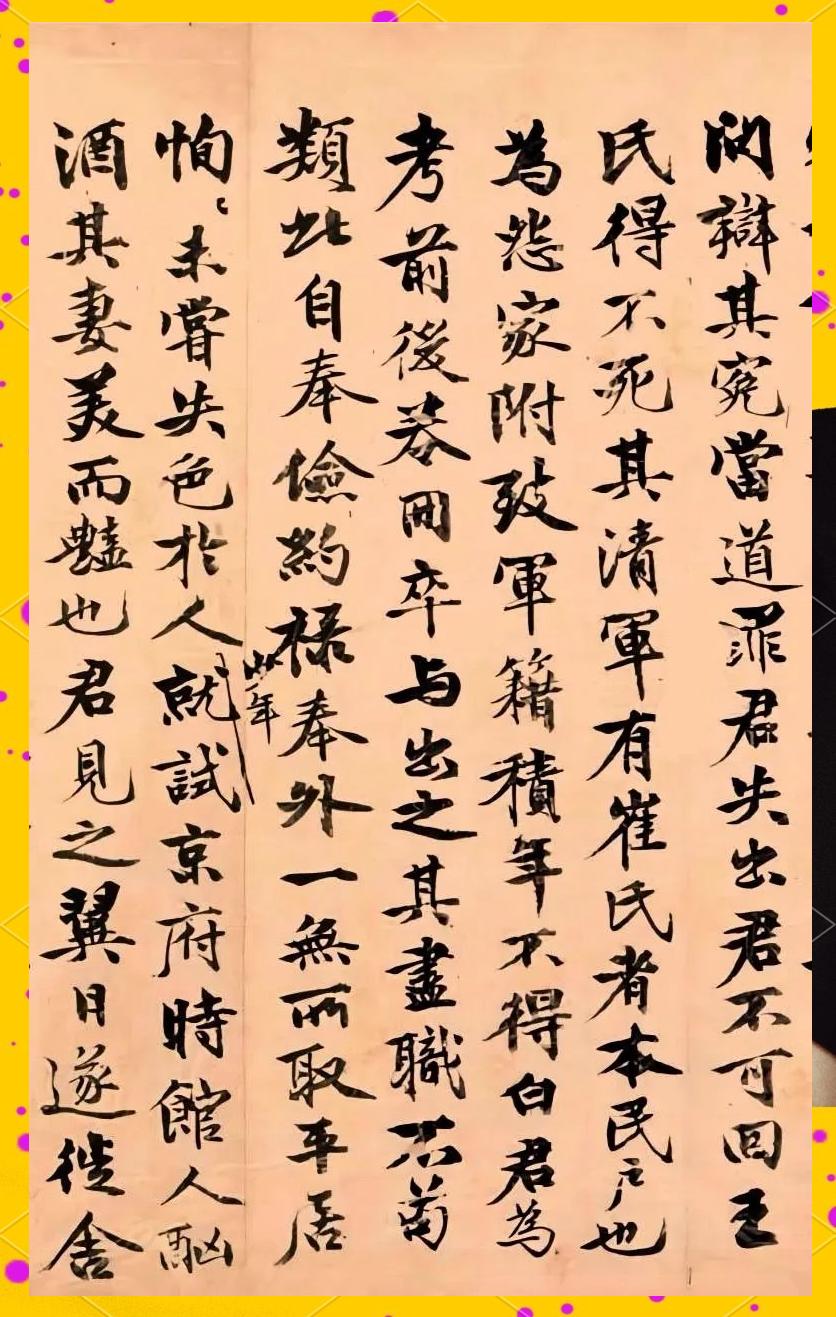 問辯其寃當道罪君失出君不可回王
氏得不死其清軍有崔氏者本民戶也
為怨家附致軍籍積年不得白君為
考前後券冊卒与出之其盡職不苟
類此自奉儉約禄奉外一無所取平居
少年
恂〻未嘗失色於人就試京府時館人酗
酒其妻美而豔也君見之翼日遂徙舍